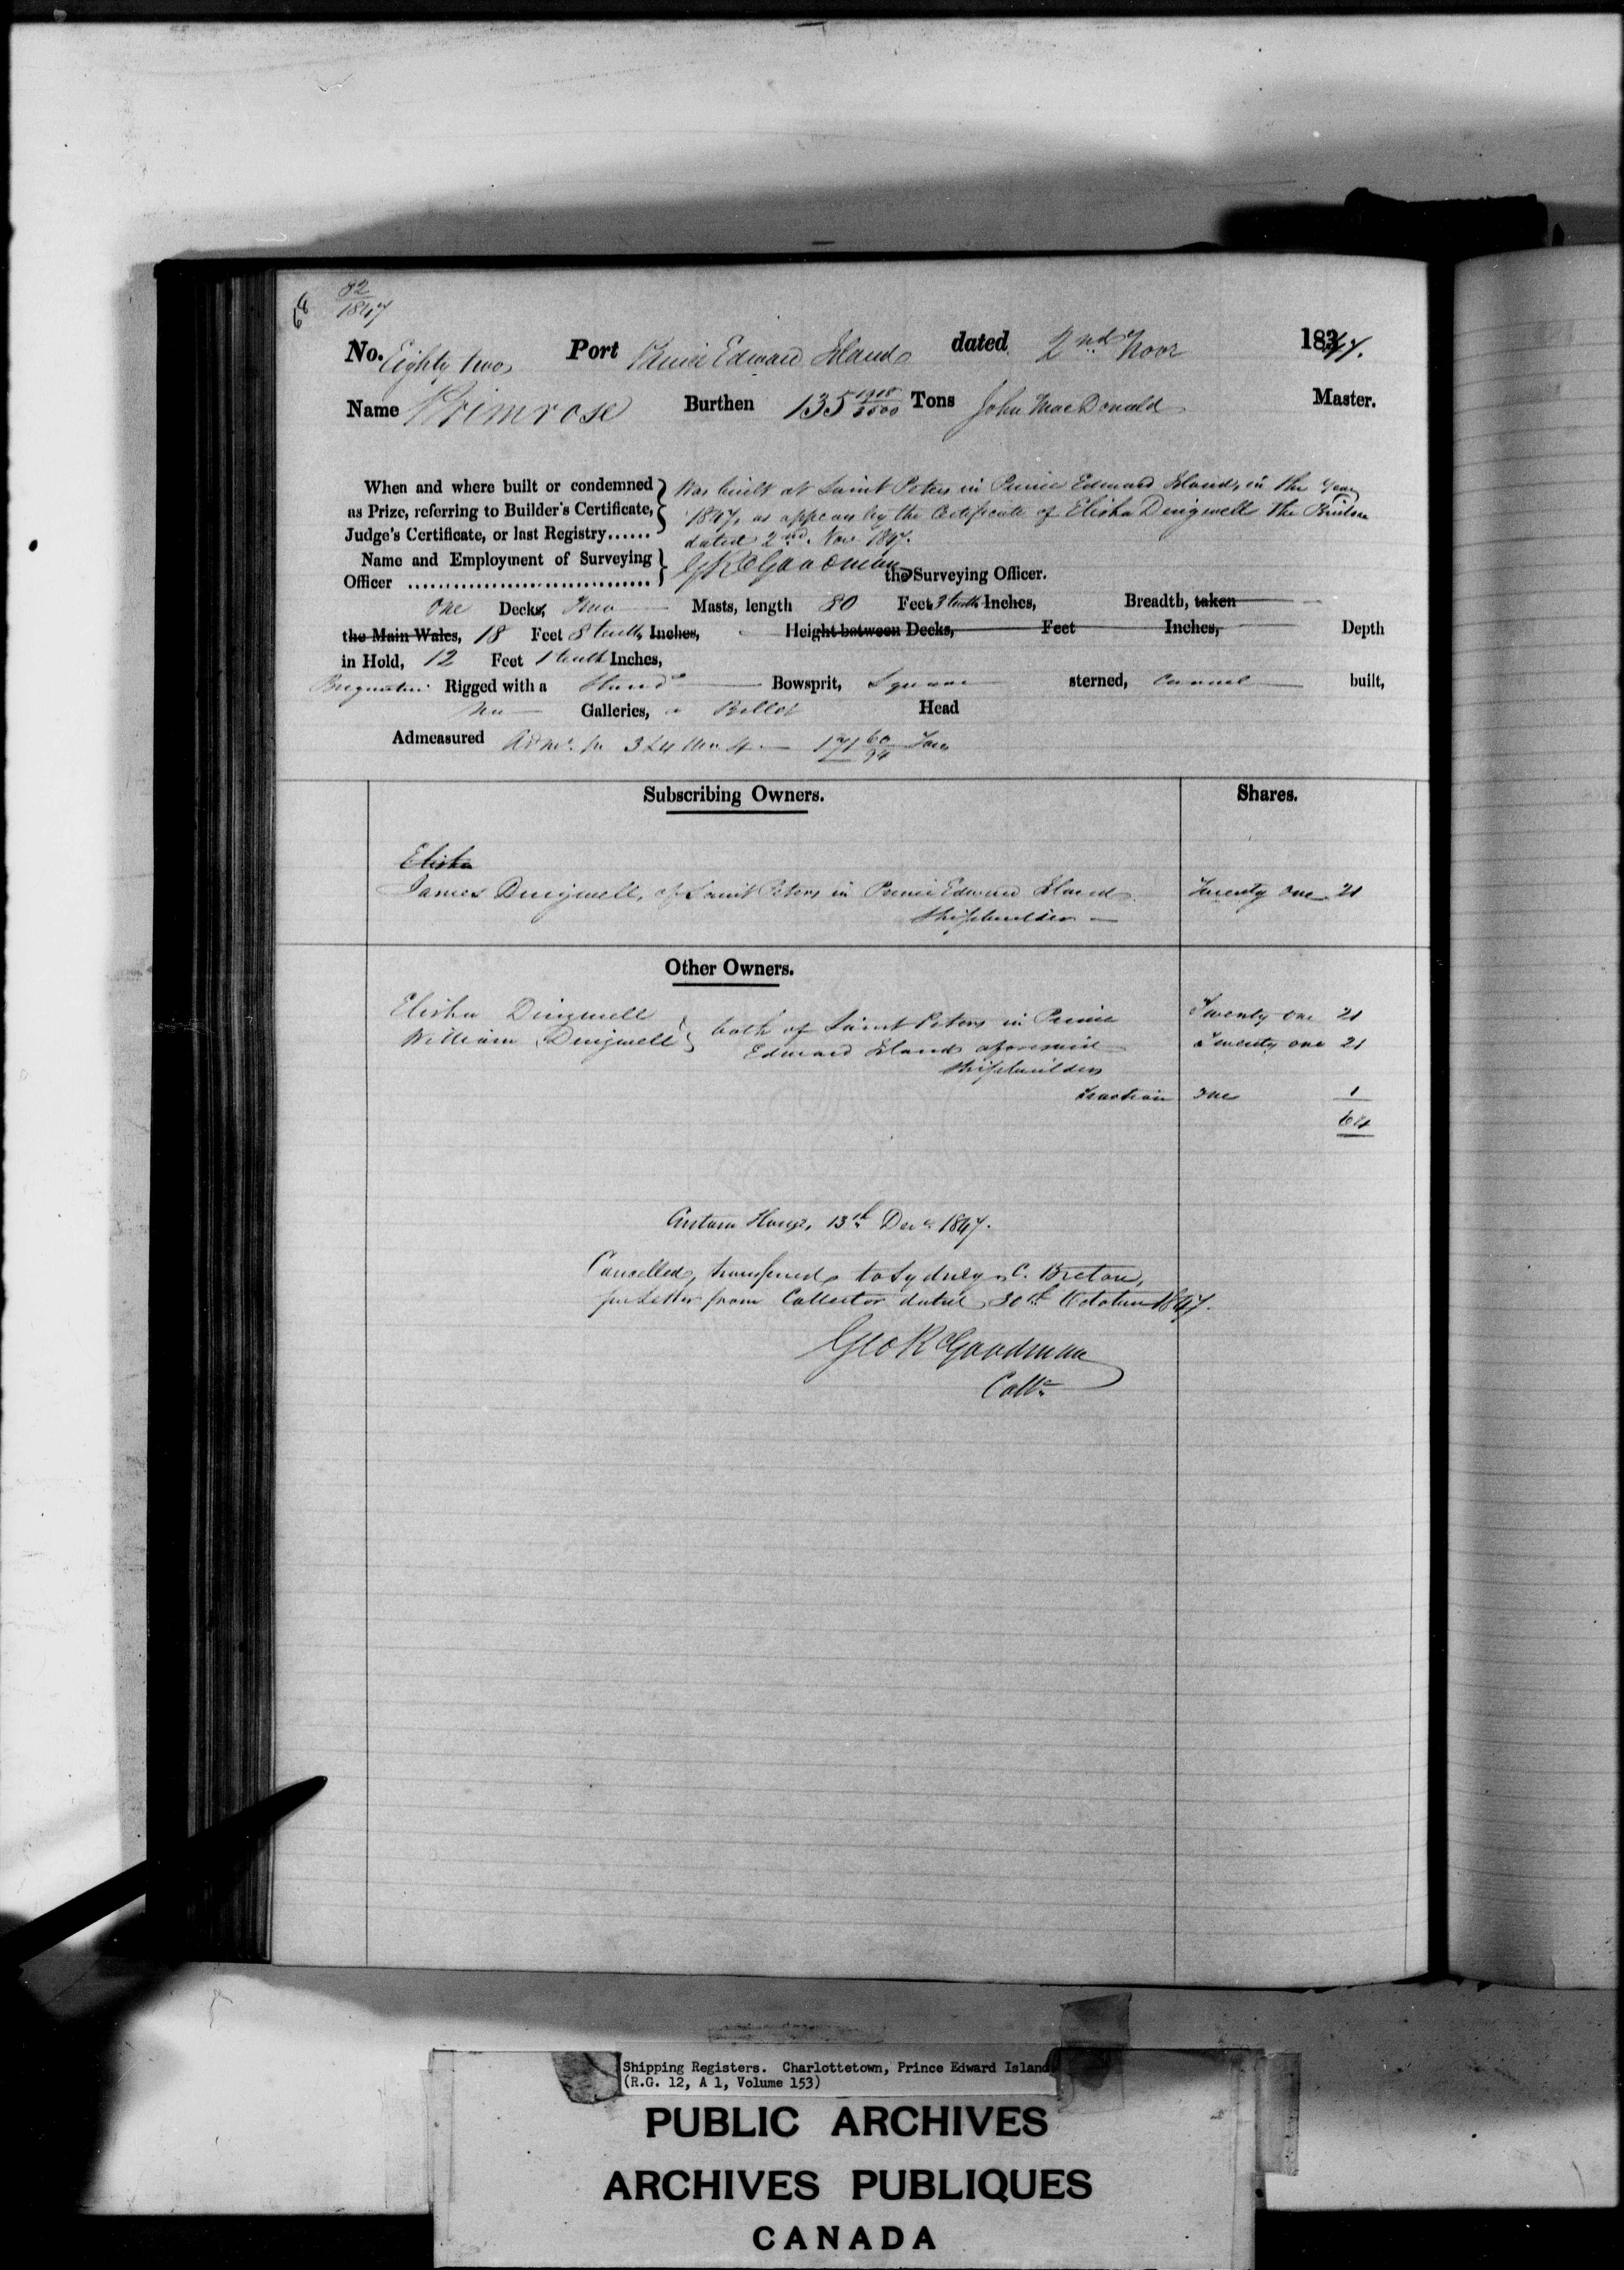 82
1847
No. Eighty two Port Prince Edward Island dated 2nd Novr 1847.
Name Primrose Burthen 135 1918/3500 Tons John MacDonald Master.
When and where built or condemned as Prize, referring to Builder's Certificate, Judge's Certificate, or last Registry......
Was built at Saint Peters in Prince Edward Island, in the Year
1847, as appears by the Certificate of Elisha Dingwell the Builder
dated 2nd. Nov 1847.
Name and Employment of Surveying Officer ................................ G R Goodman the Surveying Officer.
One Decks, Two Masts, length 80 Feet 3 tenths Inches, Breadth, taken
the Main Wales, 18 Feet 8 tenths Inches, Height between Decks, Feet Inches, Depth
in Hold, 12 Feet 1 tenth Inches,
Brigantine Rigged with a Stand Bowsprit, Square sterned, Carvel built,
No Galleries, a Billet Head
Admeasured 171 60/94 Tons
Subscribing Owners. Shares.
Elisha
James Dingwell, of Saint Peters in Prince Edward Island Twenty one 21
Shipbuilder
Other Owners.
Elisha Dingwell Twenty one 21
William Dingwell both of Saint Peters in Prince Twenty one 21
Edward Island aforesaid
Shipbuilders
Fraction one 1
64
Custom House, 13th Decr 1847.
Cancelled, transferred to Sydney, C. Breton,
per Letter from Collector dated 30th October 1847.
Geo R Goodman
Collr
Shipping Registers. Charlottetown, Prince Edward Island
(R.G. 12, A 1, Volume 153)
PUBLIC ARCHIVES
ARCHIVES PUBLIQUES
CANADA